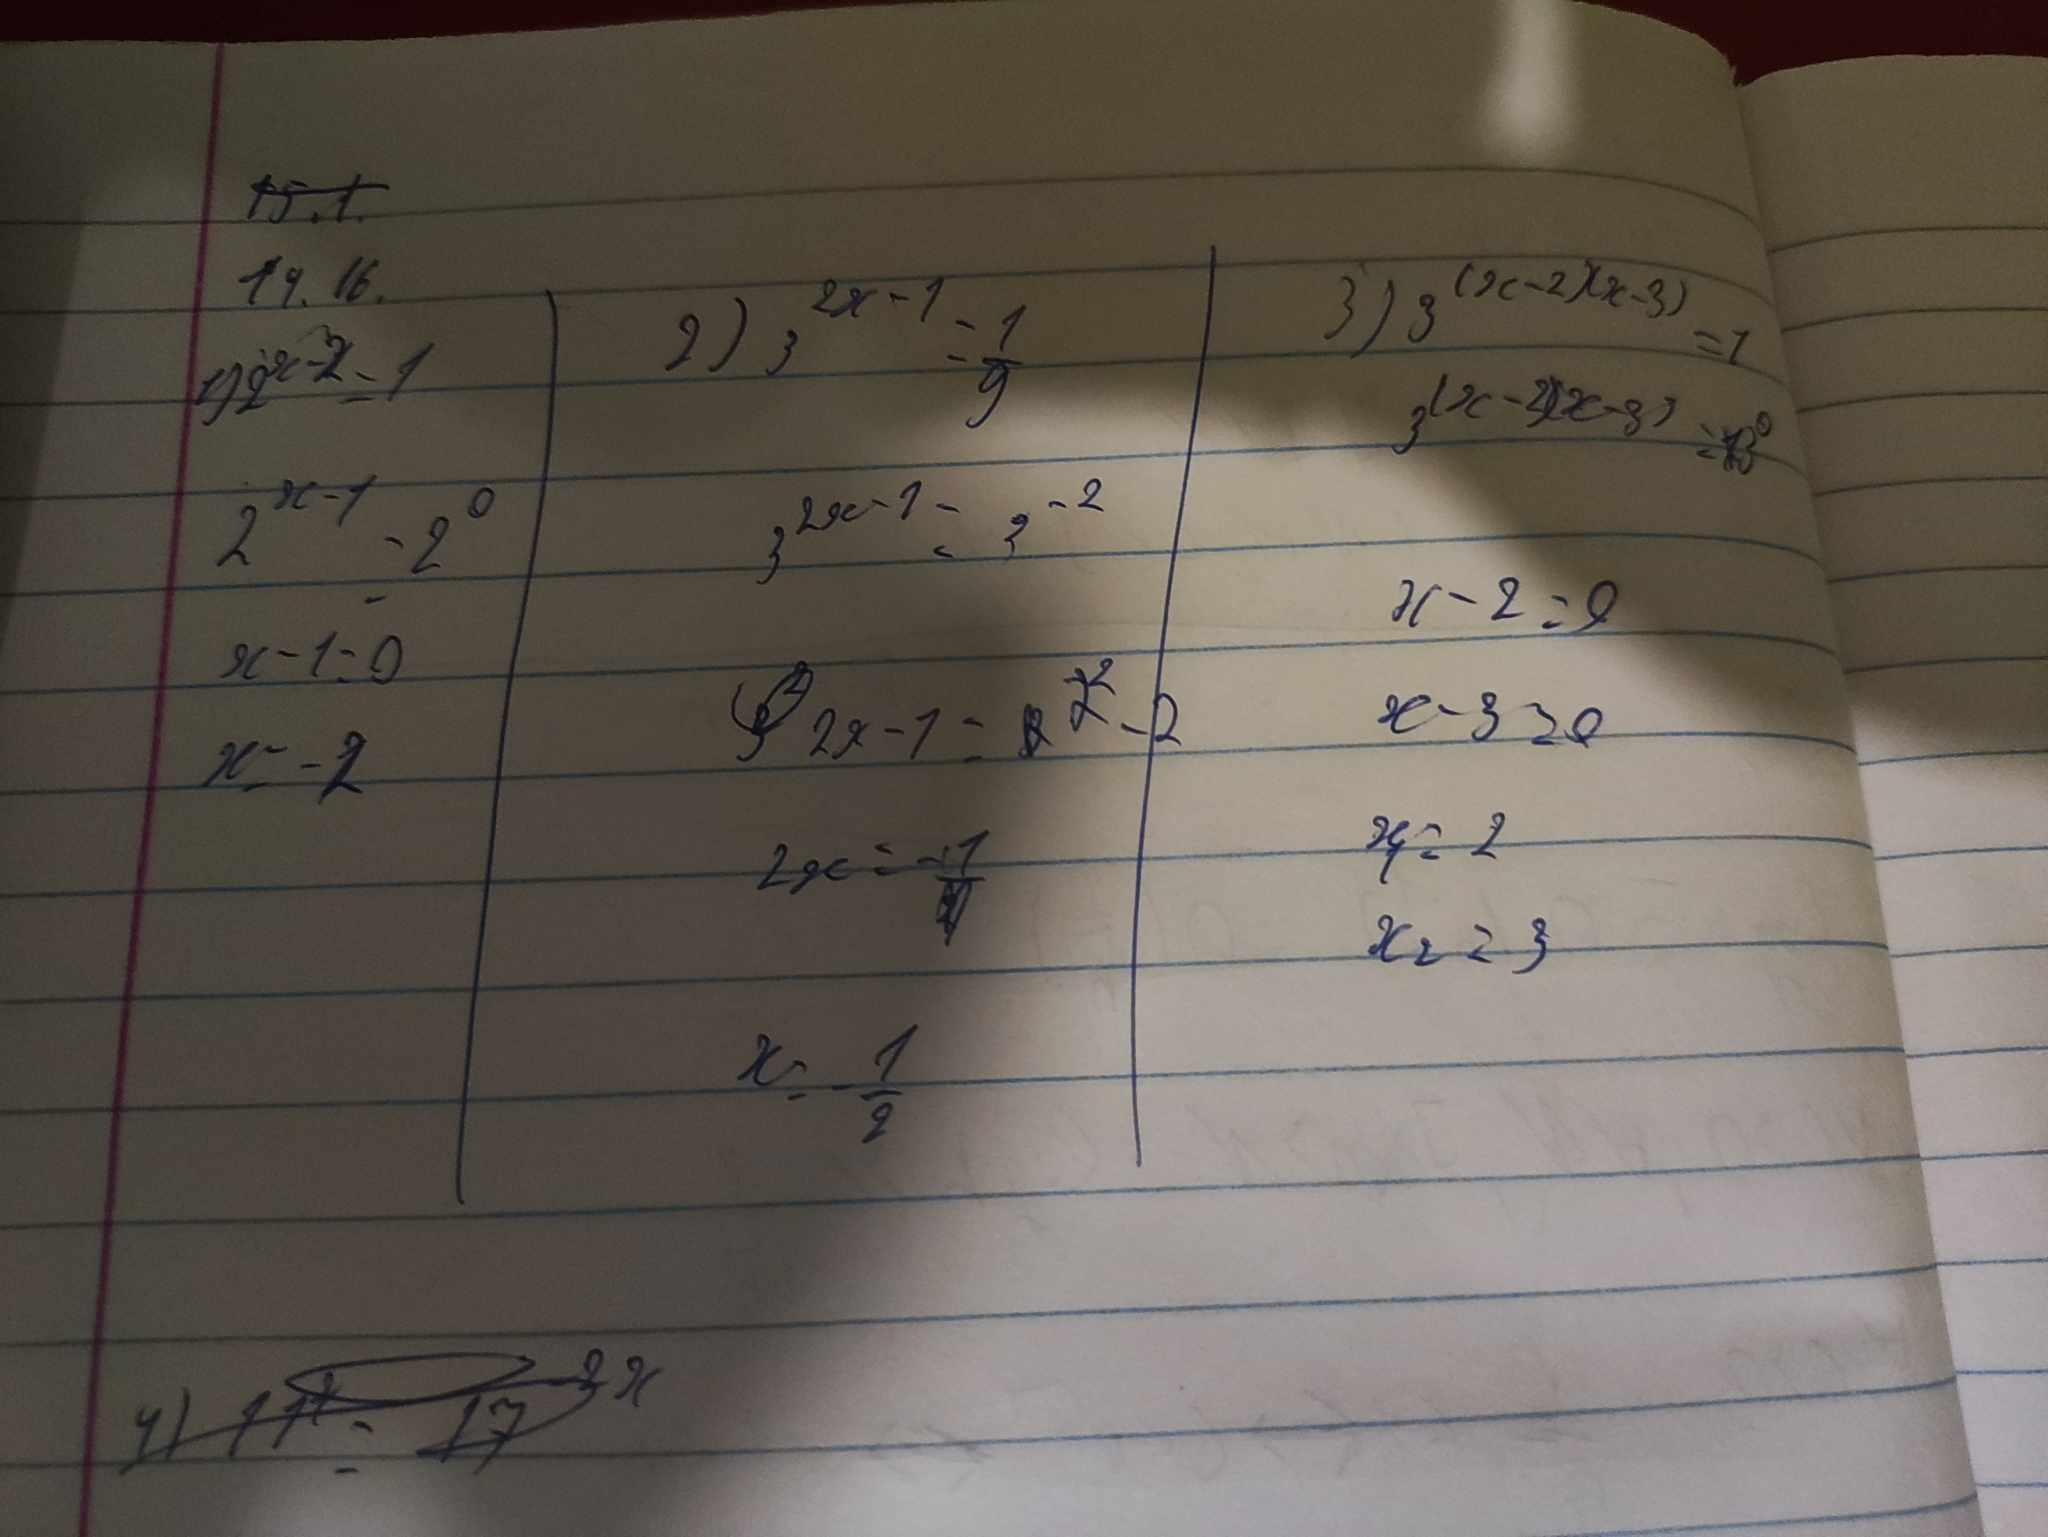 15.1.
19.16.
1) 2^{x-2} = 1
2^{x-1} = 2^0
x-1=0
x=-2
2) 3^{2x-1} = \frac{1}{9}
3^{2x-1} = 3^{-2}
2x-1 = -2
2x = -1
x = -\frac{1}{2}
3) 3^{(x-2)(x-3)} = 1
3^{(x-2)(x-3)} = 3^0
x-2=0
x-3=0
x_1=2
x_2=3
4)